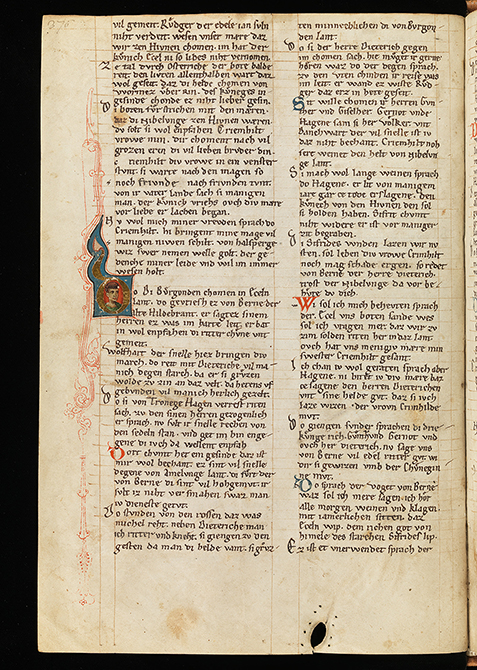 vil gemeit. Rvdger der edele ian svln
nicht verdeit. wesen vnser mære daz
wir zen Hvnen chomen. im hat der
kvnich Ecel ni so libes nicht vernomen.
Ze tal dvrch Osteriche der bote balde
reit. den livten allenthalben wart daz
wol geseit. daz di helde chomen von
wormez vber Rin. des kvneges in
gesinde chonde ez nicht lieber gesin.
Di boten fvr strichen mit den mæren.
daz di Nibelvnge zen Hvnen wæren.
dv solt si wol enpfahen Criemhilt
vrowe min. dir choment nach vil
grozen eren di vil lieben brvder din.
Criemhilt div vrowe in ein venster
stvnt. si warte nach den magen so
noch frivnde nach frivnden tvnt.
von ir vater lande sach si manigen
man. der kvnich vriesch ovch div mære
vor liebe er lachen began.
Nv wol mich miner vrovden sprach do
Criemhilt. hi bringent mine mage vil
manigen nivwen schilt. von halsperge
wiz swer nemen welle golt. der ge
denche miner leide vnd wil im immer
wesen holt.
Do di Bvrgonden chomen in Eceln
lant. do gevriesch ez von Berne der
alte Hildebrant. er sagtez sinem
herren ez was im harte leit. er bat
in wol enpfahen di ritter chvne vnt
gemeit.
Wolfhart der snelle hiez bringen div
march. do reit mit Dieteriche vil ma
nich degen starch. da er si grvzen
wolde zv zin an daz velt. da hetens vf
gebvnden vil manich herlich gezelt.
Do si von Tronege Hagen verrest riten
sach. zv den sinen herren gezogenlich
er sprach. nv svlt ir snelle rechen von
dem sedele stan. vnd get im hin enge
gene di ivch da wellent enpfah
Dort chvmt her ein gesinde daz ist
mir wol bechant. ez sint vil snelle
degene von Amelvnge lant. di fvret der
von Berne di sint vil hohgemvt. ir
svlt iz niht versmahen swaz man
iv dieneste getvt.
Do stvnden von den rossen daz was
michel reht. neben Dieteriche man
ich ritter vnd kneht. si giengen zv den
gesten da man di helde vant. si grvz
ten minnechlichen di von Bvrgon
den lant.
Do si der herre Dieterich gegen
im chomen sach. hie mvget ir gerne
hören waz do der degen sprach.
zv den Vten chinden ir reise was
im leit. er wand ez wiste Rvd
ger daz erz in het geseit.
Sit wille chomen ir herren Gvn
ther vnd Giselher. Gernot vnde
Hagene sam si her Volker vnt
Danchwart der vil snelle ist iv
daz niht bechant. Criemhilt noh
sere weinet den helt von Nibelvn
ge lant.
Si mach wol lange weinen sprach
do Hagene. er lit von manigem
iare gar ce tode erslagene. den
kvnech von den Hvnen den sol
si holden haben. Sifrit chvmt
niht widere er ist vor maniger
zit begraben.
Di Sifrides wnden lazen wir nv
sten. sol leben div vrowe Criemhilt
noch mag schade ergen. so redet
von Berne der herre Dieterich.
trost der Nibelvnge da vor be
hvte dv dich.
Wi sol ich mich behveten sprach
der. Ecel vns boten sande wes
sol ich vragen mer. daz wir zv
zim solden riten her in daz lant.
ovch hat vns menigiv mære min
swester Criemhilt gesant.
Ich chan iv wol geraten sprach aber
Hagene. nv bittet iv div mære baz
ce sagene den herren Dieterichen
vnt sine helde gvt. daz si ivch
laze wizzen der vrovn Crimhilde
mvt.
Do giengen svnder sprachen di drie
kvnige rich. Gvnther vnd Gernot vnd
ovch her Dieterich. nv sagt vns
von Berne vil edel ritter gvt. wi
dir si gewizen vmb der chvnegin
ne mvt.
Do sprach der voget von Berne
waz sol ich mere sagen. ich hör
alle morgen weinen vnd klagen.
mit iæmerlichen sitten daz
Eceln wip. dem richen got von
himele des starchen Sifrides lip.
Ez ist et vnerwendet sprach der